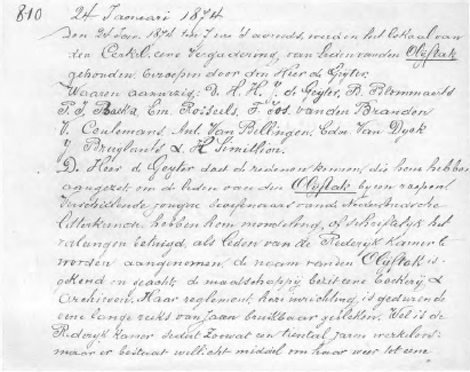 810
24 Januari 1874
Den 24 Jan. 1874 ten 7 ure 's avonds, werd in het lokaal van
den Cerkl. eene Vergadering van leden van den Olijftak
gehouden, beroepen door den Heer de Geyter.
Waaren aanwezig: D. H. H. J. de Geyter, P. Blommaerts
P. J. Em. Rosseels, F. Jos. van den Branden
V. Ceulemans, Ant. Van Bellingen, Edw. Van Dyck
J. Bruylants & H Simillion.
D. Heer de Geyter doet de redenen kennen, die hem hebben
aangezet om de leden van den Olijftak byeen roepen
Verschillende jongere beoefenaars van de Nederduitsche
letterkunde hebben hem mondeling, of schriftelijk het
verlangen betuigd, als leden van de Rederijkkamer te
worden aangenomen, de naam van den Olijftak is
gekend en geacht, de maatschappij bezit eene boekerij &
Archieven. Haar reglement, hare inrichting, is gedurende
eene lange reeks van jaren bruikbaar gebleken. Wel is de
Rederijkkamer sedert zoowat een tiental jaren werkeloos:
maar er bestaat wellicht middel om haar weer tot eene